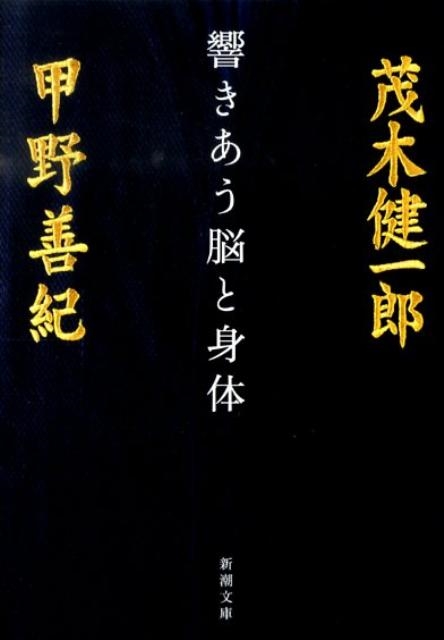 茂木健一郎
響きあう脳と身体
甲野善紀
新潮文庫